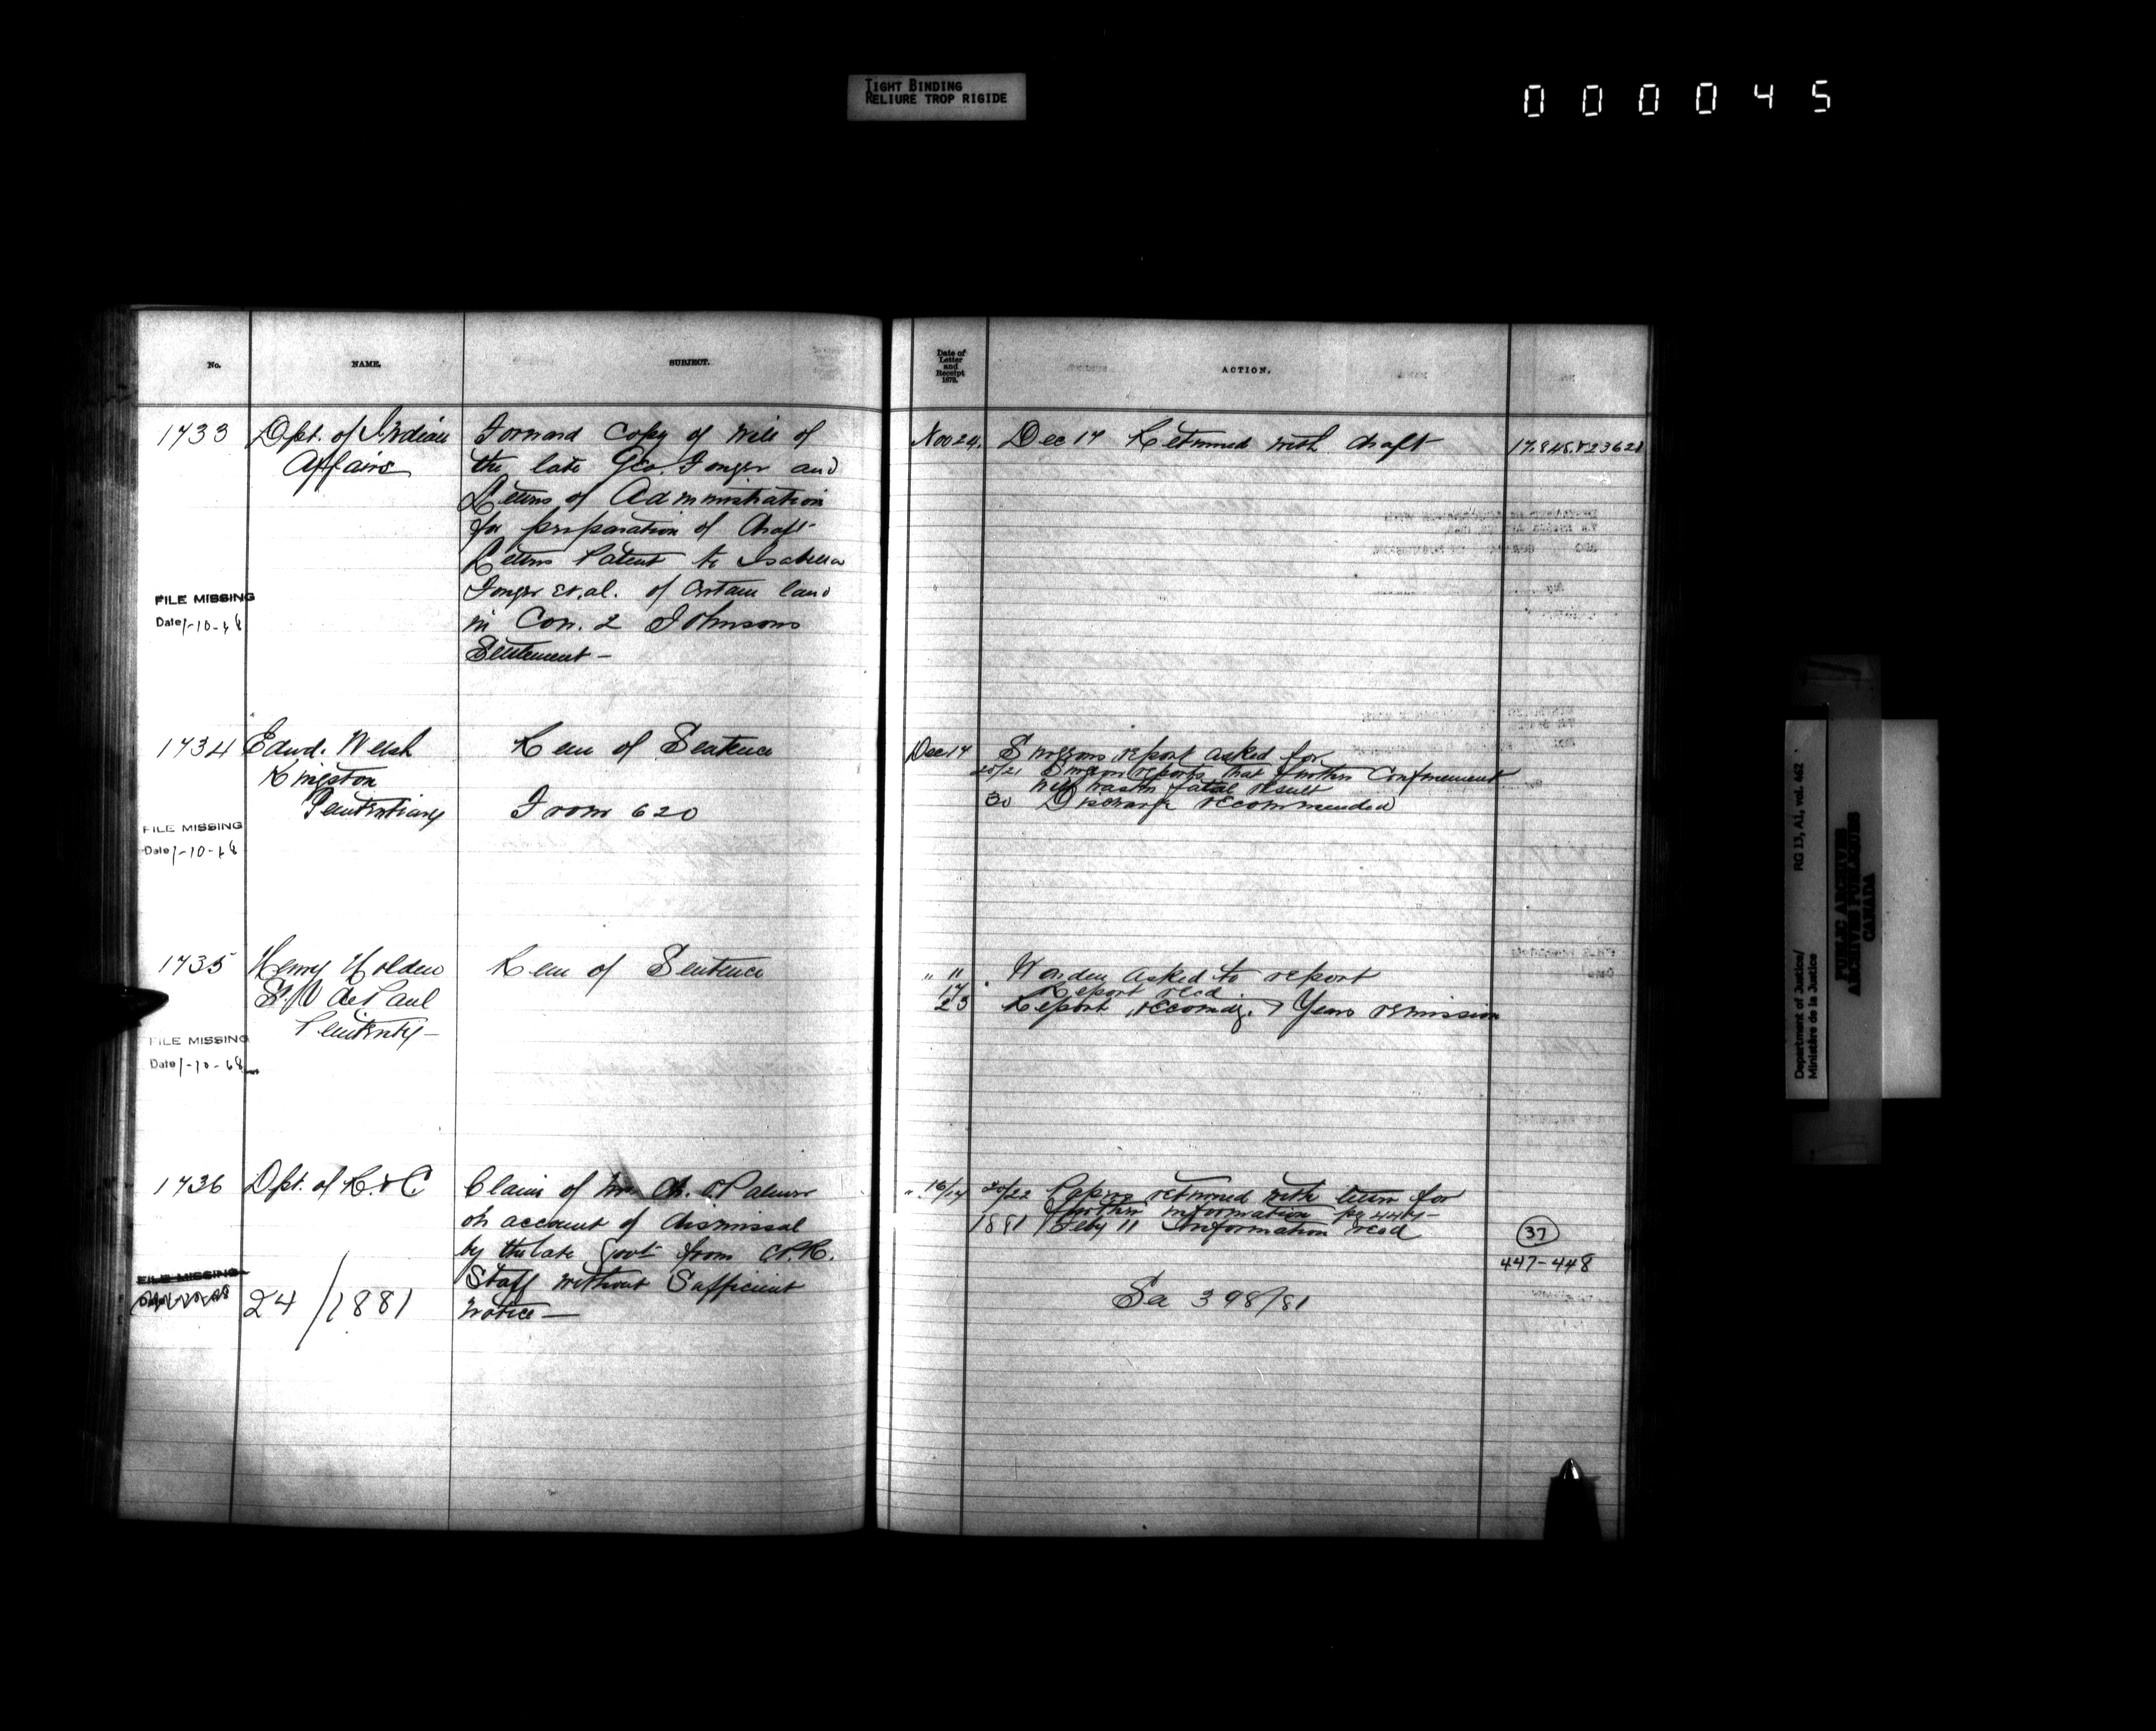 TIGHT BINDING
RELIURE TROP RIGIDE
000045
No.
NAME.
SUBJECT.
Date of
Letter
and
Receipt
1879.
ACTION.
1733
Dpt. of Indian
Affairs
Forward Copy of will of
the late Geo. Fonger and
Letters of Administration
for preparation of draft
Letters Patent to Isabella
Fonger et. al. of certain land
in Con. 2 Johnsons
Settlement —
Nov 24.
Dec 17 Returned with draft
FILE MISSING
Date 1-10-68
1734
Edwd. Welsh
Kingston
Penitentiary
Rem of Sentence
From 620
Dec 17
Surgeons report asked for
20/21 Surgeon reports that further Confinement
will hasten fatal result
30 Discharge recommended
FILE MISSING
Date 1-10-68
1735
Henry Holden
St. V de Paul
Penitenty —
Rem of Sentence
" 11
Warden asked to report
17 Report recd
23 Report recomdg. 7 Years remission
FILE MISSING
Date 1-10-68
1736
Dpt. of R. & C
Claim of Ch. Palmer
on account of dismissal
by the late Govt from C.P.R.
Staff without Sufficient
notice —
" 16/17
20/22 Papers returned with letter for
further information
1881 Feby 11 Information recd
37
447-448
FILE MISSING
24/1881
See 398/81
Department of Justice/
Ministère de la Justice
RG 13, A1, vol. 462
PUBLIC ARCHIVES
ARCHIVES PUBLIQUES
CANADA